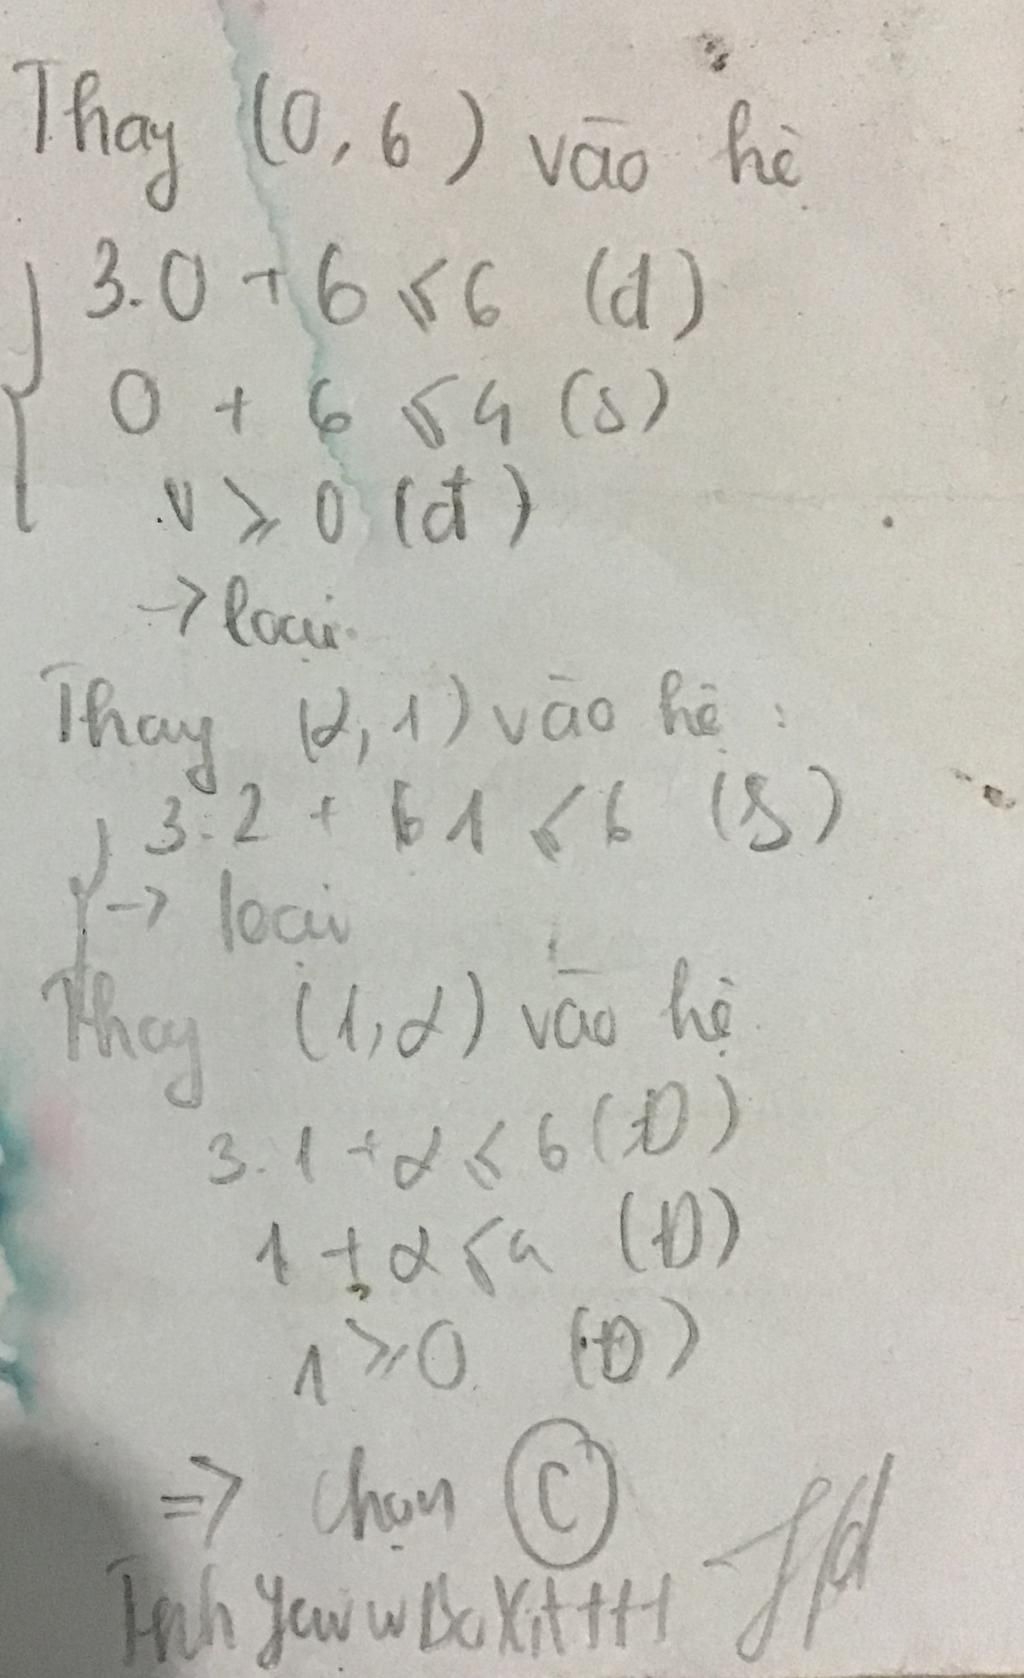 Thay (0, 6) vào hệ
3.0 + 6 ≤ 6 (đ)
0 + 6 ≤ 4 (s)
0 ≥ 0 (đ)
→ loại
Thay (2, 1) vào hệ :
3.2 + 1 ≤ 6 (S)
→ loại
Thay (1, 2) vào hệ
3.1 + 2 ≤ 6 (Đ)
1 + 2 ≤ 4 (Đ)
1 ≥ 0 (Đ)
⇒ chọn C